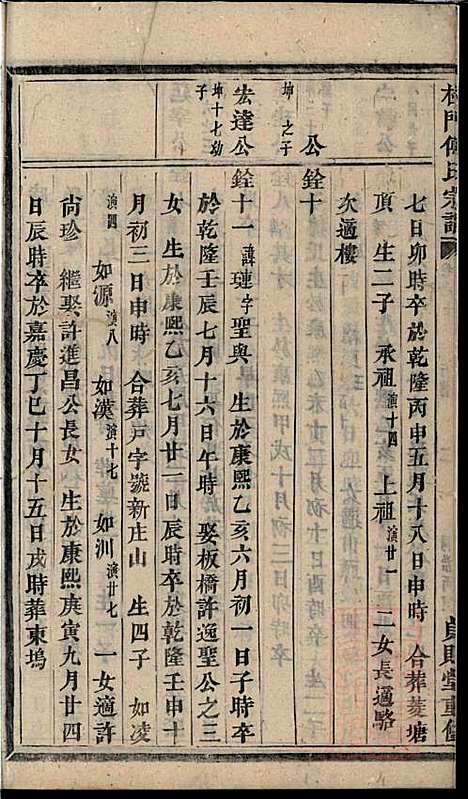 傅氏宗譜
貞則堂重修
七日卯時卒於乾隆丙申五月十八日申時 合葬菱塘
頂 生二子 承祖演十四 上祖演廿一 二女長適駱
次適樓
坤 之子
公銓十
宏達公坤十七幼子
銓十一諱璉字聖與 生於康熙乙亥六月初一日子時卒
於乾隆壬辰七月十六日午時 娶板橋許逸聖公之三
女 生於康熙乙亥七月廿二日辰時卒於乾隆壬申十
月初三日申時 合葬戸字號新庄山 生四子 如凌
演四 如源演八 如漢演十七 如川演廿七 一女適許
尚珍 繼娶許進昌公長女 生於康熙庚寅九月廿四
日辰時卒於嘉慶丁巳十月十五日戌時葬東塢